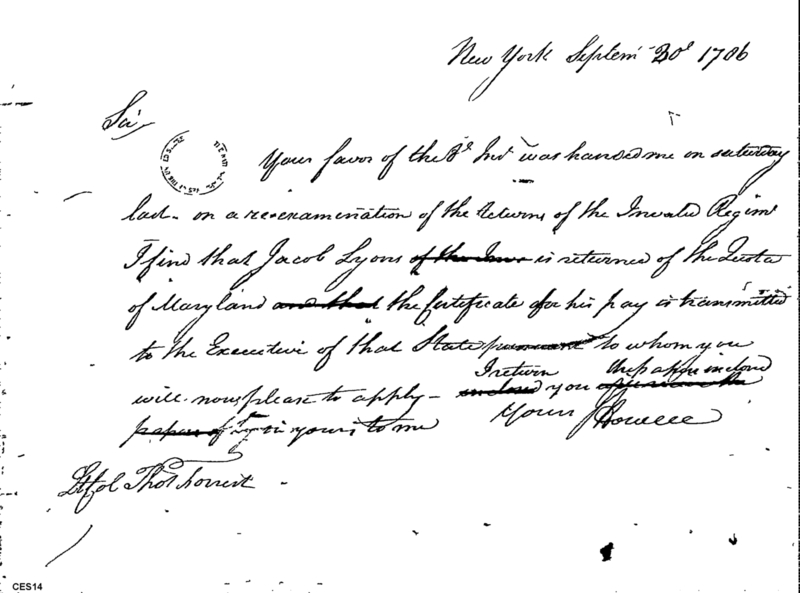 New York Septemr 20d 1786
Sir
Your favor of the 8th Inst was handed me on saturday
last - on a re-examination of the returns of the Invalid Regimt
I find that Jacob Lyons of the Inv is returned of the Quota
of Maryland and that the Certificate for his pay is transmitted
to the Executive of that State to whom you
I return the papers inclosed
will now please to apply - inclosed you
papers of in yours to me
Yours JHowell
Lt Col Thos Forrest
CES14